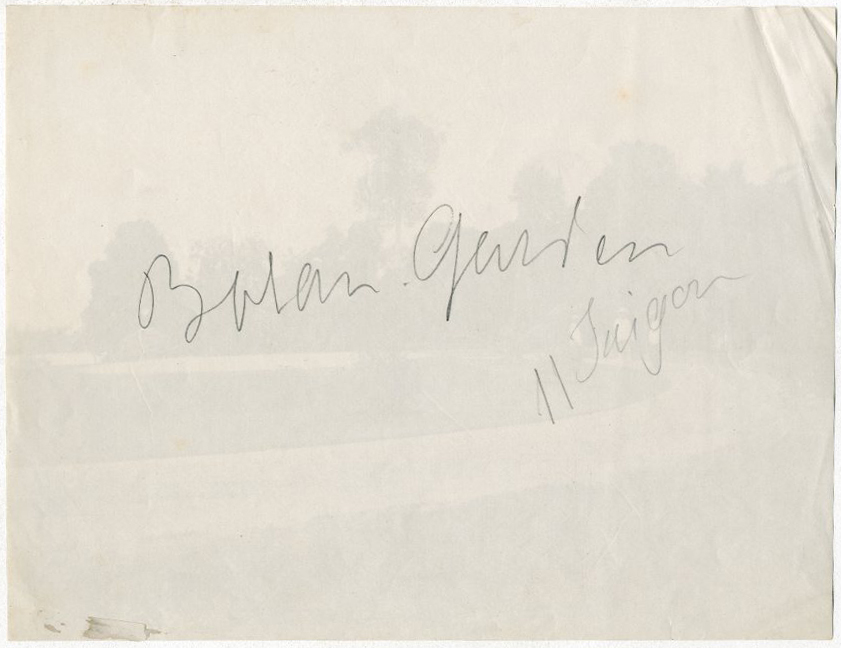 Botan. Garden
11 Saigon